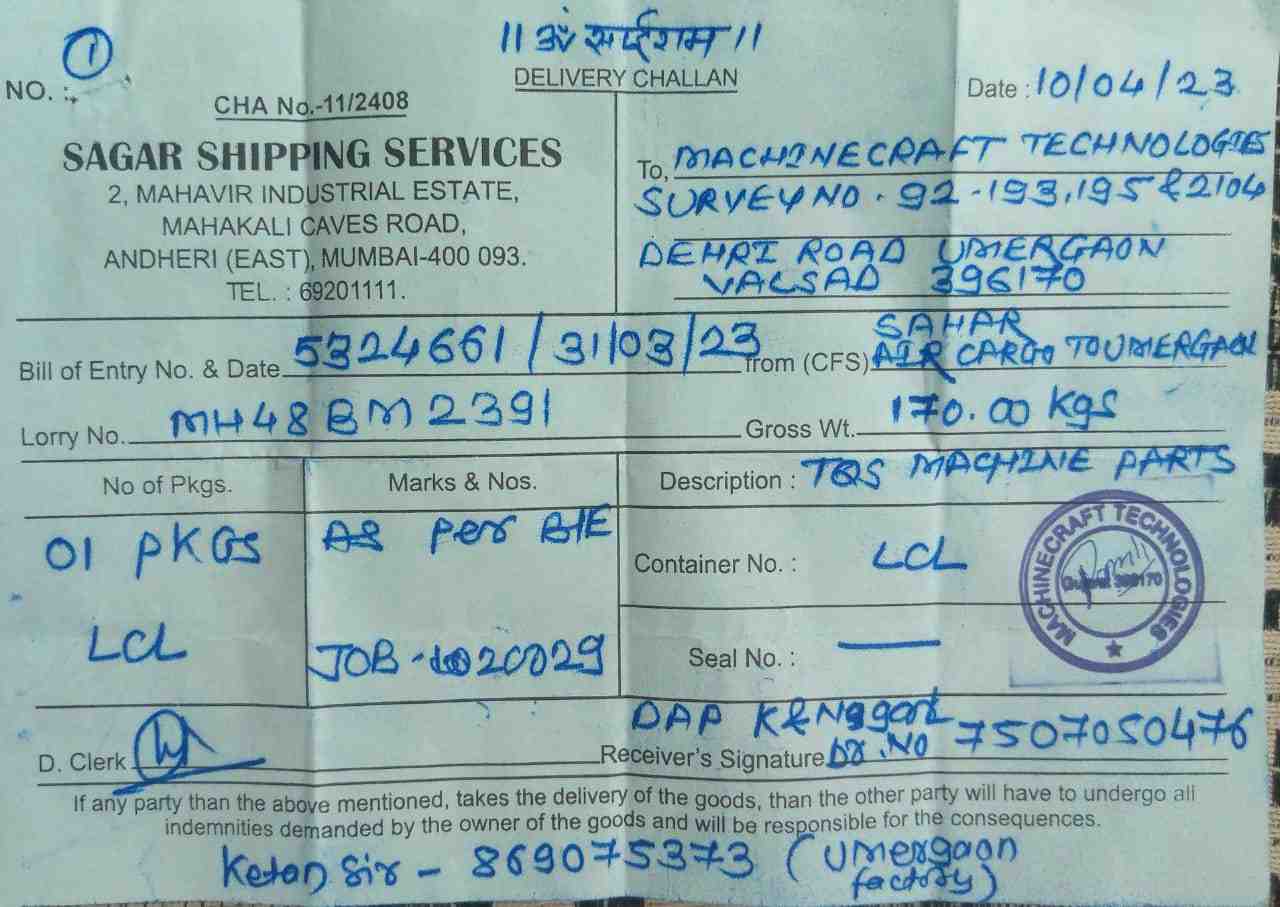 || ॐ साईराम ||
DELIVERY CHALLAN
NO. : 1
Date : 10/04/23
CHA No.-11/2408
SAGAR SHIPPING SERVICES
2, MAHAVIR INDUSTRIAL ESTATE,
MAHAKALI CAVES ROAD,
ANDHERI (EAST), MUMBAI-400 093.
TEL. : 69201111.
To, MACHINECRAFT TECHNOLOGIES
SURVEY NO. 92-193,195 & 2104
DEHRI ROAD UMERGAON
VALSAD 396170
Bill of Entry No. & Date 5324661/31/03/23 from (CFS) SAHAR
AIR CARGO TO UMERGAON
Lorry No. MH48BM2391 Gross Wt. 170.00 Kgs
No of Pkgs. Marks & Nos. Description : TQS MACHINE PARTS
01 PKGS AS Per B/E Container No. : LCL
LCL JOB - 1020029 Seal No. : —
MACHINECRAFT TECHNOLOGIES
D. Clerk Receiver's Signature
DAP
Dr. No 7507050476
If any party than the above mentioned, takes the delivery of the goods, than the other party will have to undergo all
indemnities demanded by the owner of the goods and will be responsible for the consequences.
Ketan Sir - 869075373 (Umergaon
factory)